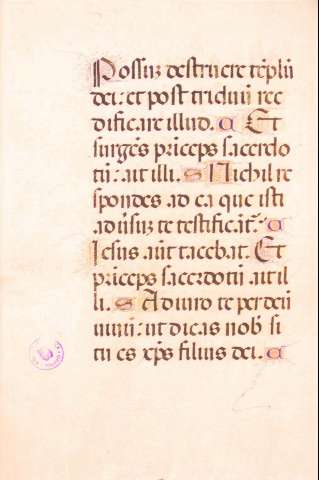 Possuz destruere tēplū
dei: et post triduū ree
dificare illud. a Et
surgēs prīceps sacerdo
tū: ait illi. S Nichil re
spondes ad ea que isti
adūsuz te testificāt: a
Jesus aūt tacebat. Et
prīceps sacerdotū ait il
li. S Adiuro te per deū
uiuū: ut dicas nob si
tu es xp̄s filius dei. a